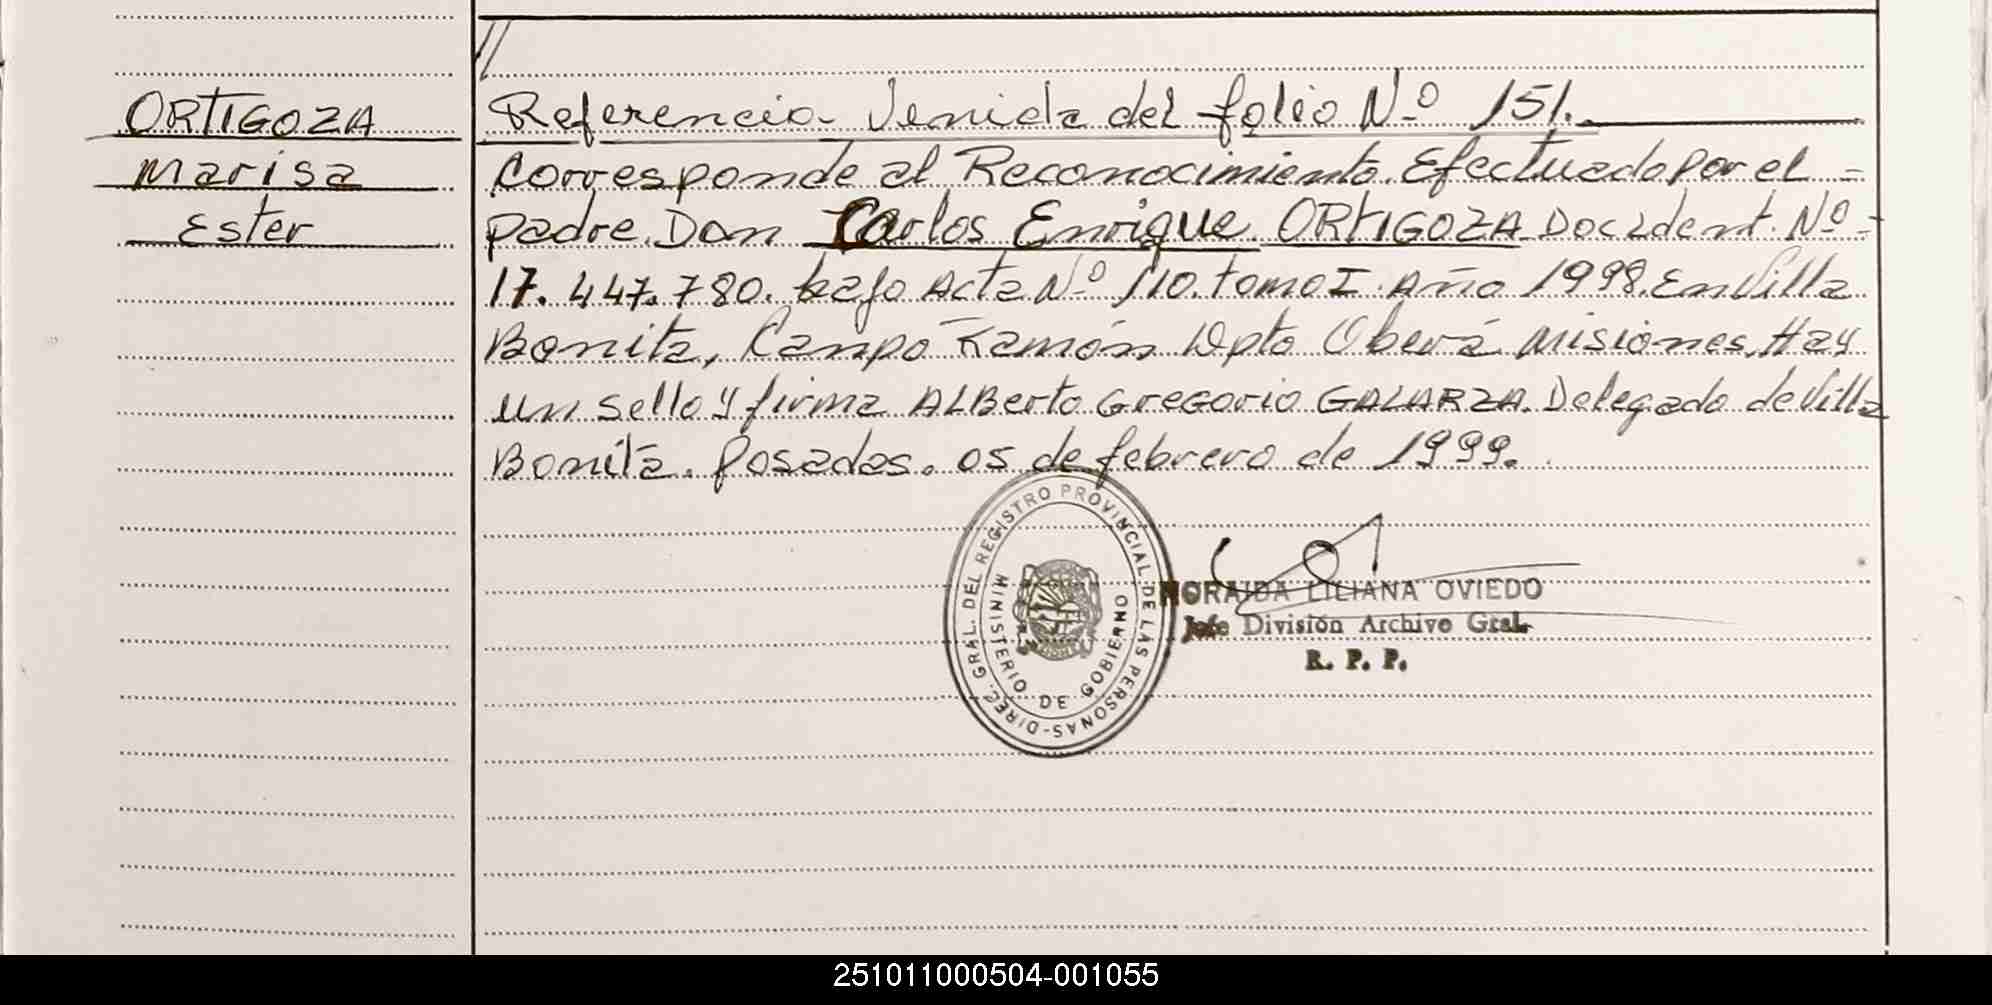 //
ORTIGOZA
Marisa
Ester
Referencia Venida del folio Nº 151.
Corresponde al Reconocimiento Efectuado por el =
padre Don Carlos Enrique ORTIGOZA Doc Ident. Nº =
17.447.780. bajo Acta Nº 110. tomo I. Año 1998. En Villa
Bonita, Campo Ramón Dpto Oberá Misiones. Hay
un sello y firma ALBerto GreGorio GALARZA. Delegado de Villa
Bonita. Posadas. 05 de febrero de 1999.
DIREC. GRAL. DEL REGISTRO PROVINCIAL DE LAS PERSONAS-
MINISTERIO DE GOBIERNO
NORAIDA LILIANA OVIEDO
Jefe División Archivo Gral.
R. P. P.
251011000504-001055